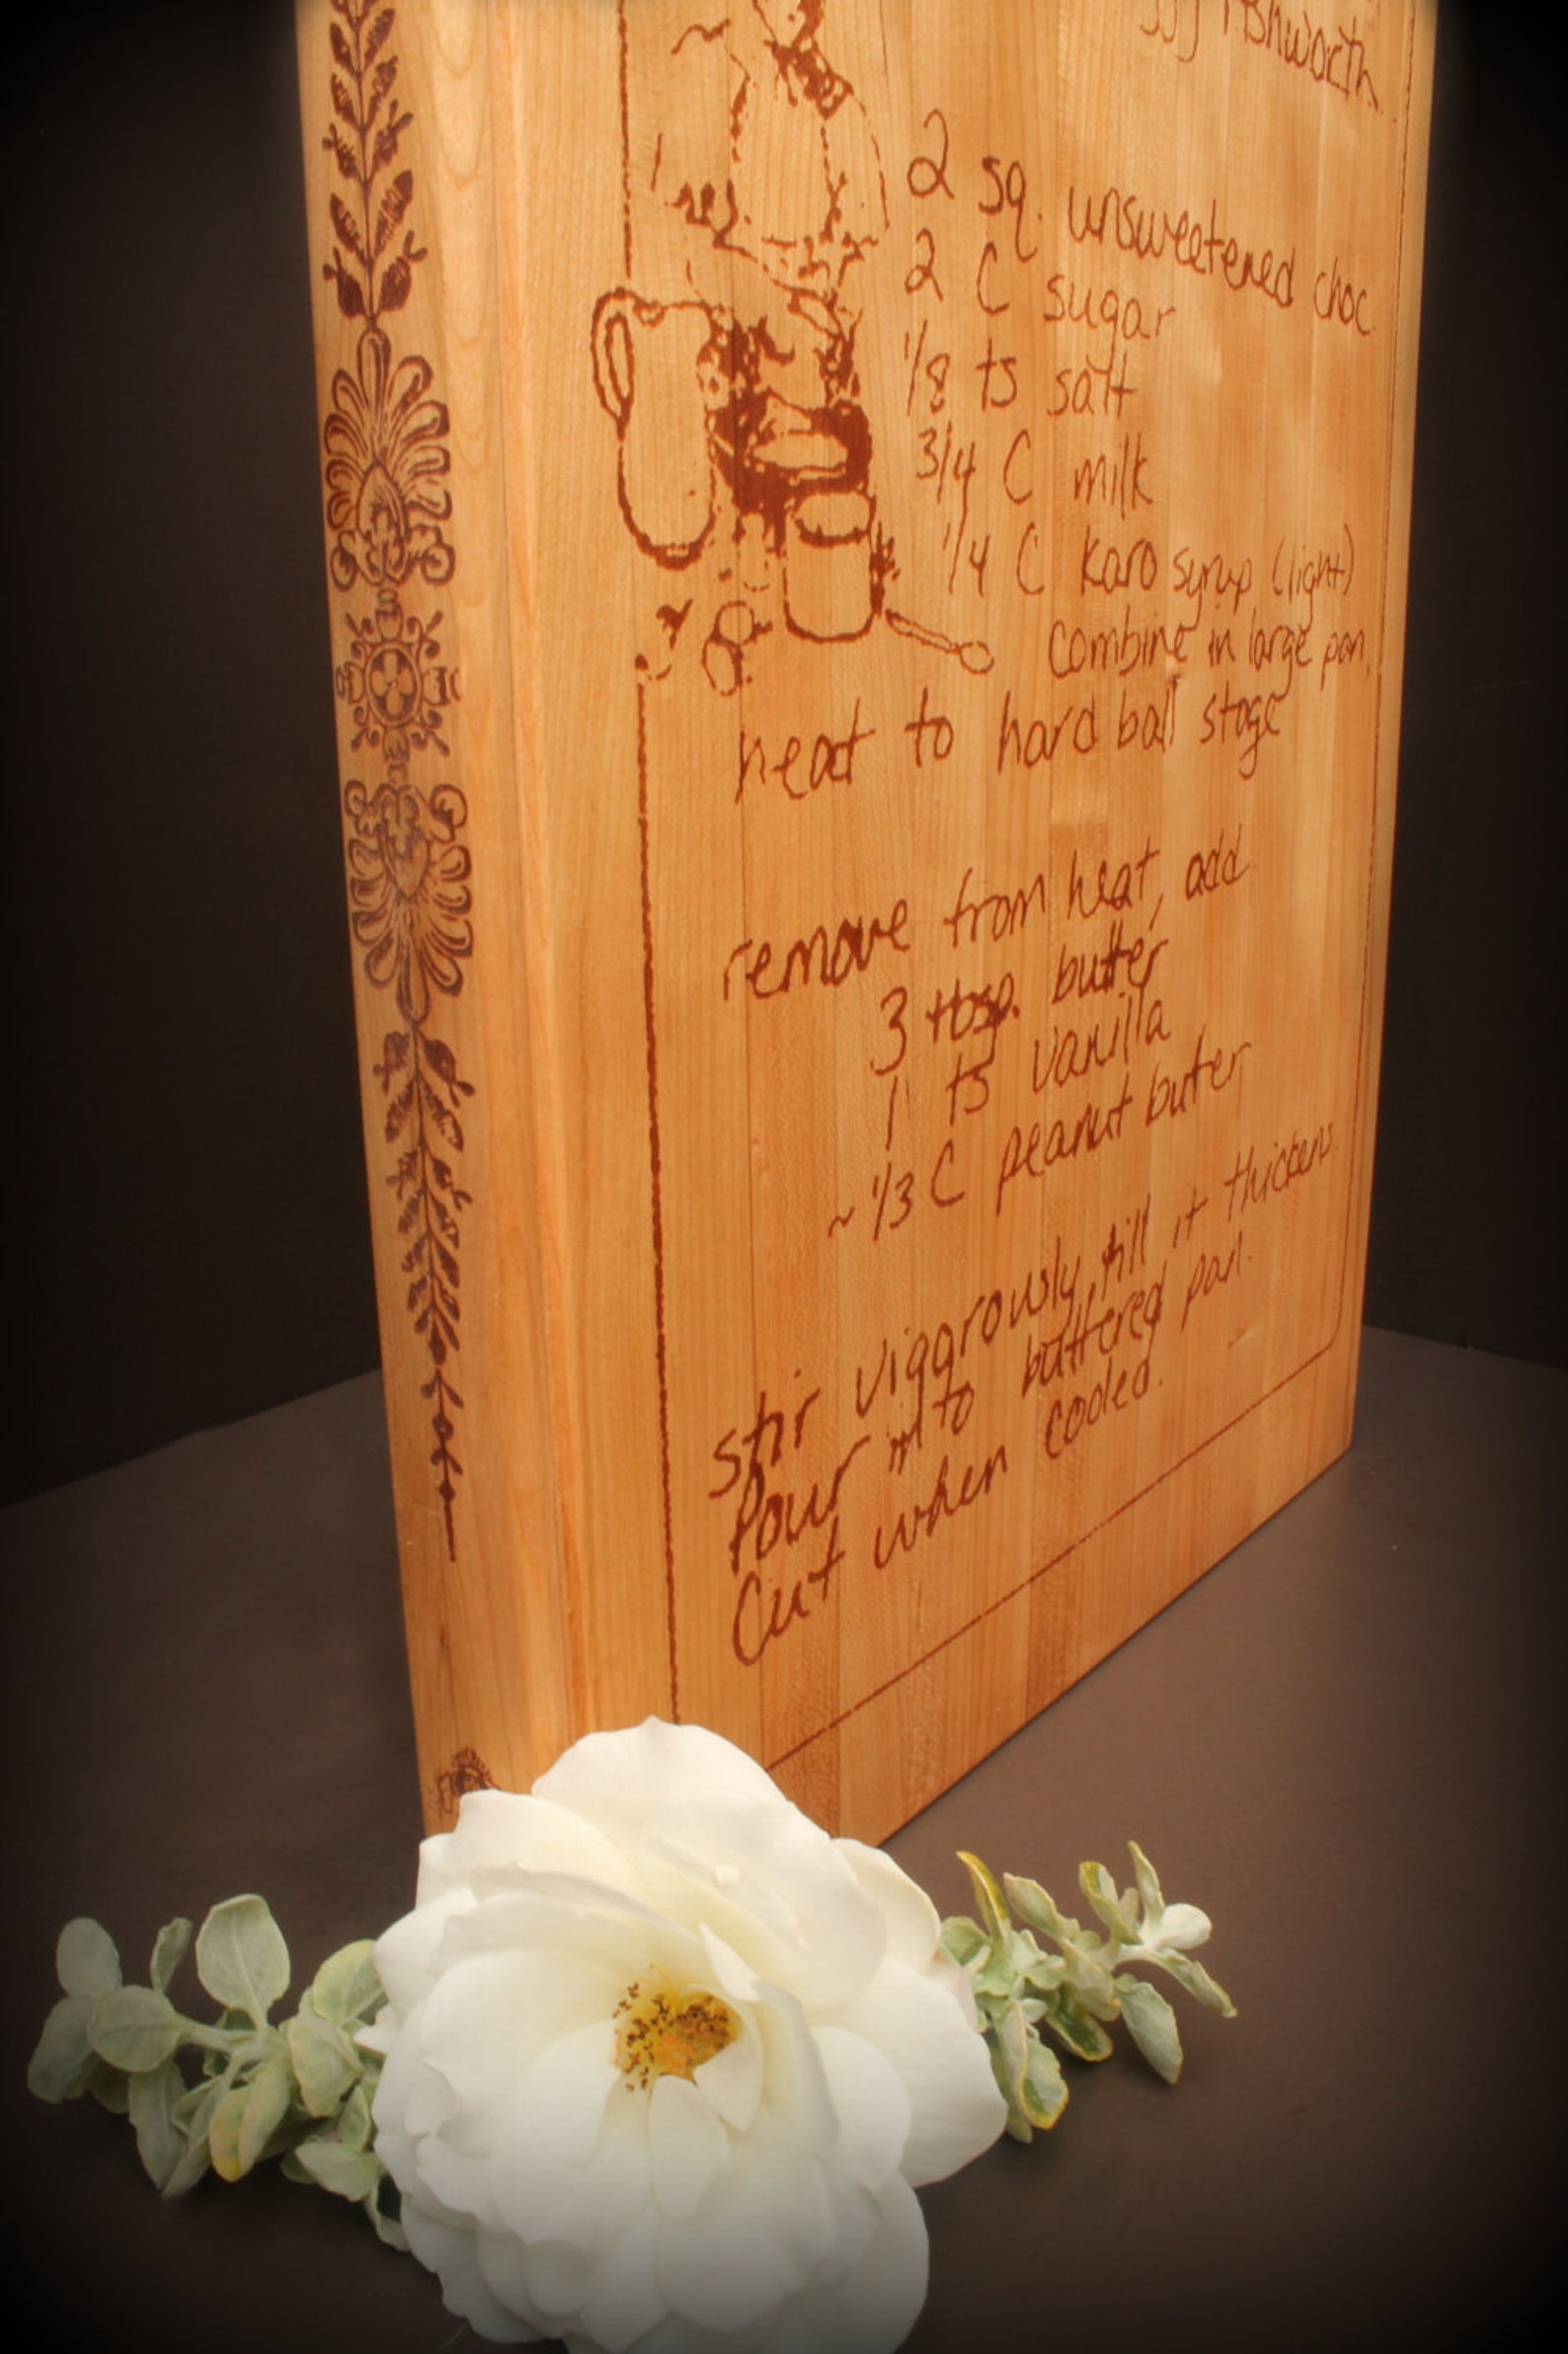 Ashworth
2 sq. unsweetened choc.
2 C sugar
1/8 ts salt
3/4 C milk
1/4 C Karo syrup (light)
combine in large pan.
heat to hard ball stage
remove from heat, add
3 tbsp. butter
1 ts vanilla
~ 1/3 C peanut butter
stir viggrously, till it thickens.
Pour into buttered pan.
Cut when cooled.